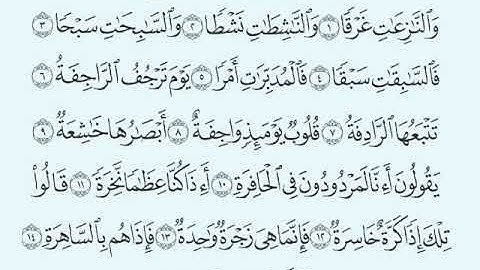 وَٱلنَّٰزِعَٰتِ غَرْقًا ١ وَٱلنَّٰشِطَٰتِ نَشْطًا ٢ وَٱلسَّٰبِحَٰتِ سَبْحًا ٣
فَٱلسَّٰبِقَٰتِ سَبْقًا ٤ فَٱلْمُدَبِّرَٰتِ أَمْرًا ٥ يَوْمَ تَرْجُفُ ٱلرَّاجِفَةُ ٦
تَتْبَعُهَا ٱلرَّادِفَةُ ٧ قُلُوبٌ يَوْمَئِذٍ وَاجِفَةٌ ٨ أَبْصَٰرُهَا خَٰشِعَةٌ ٩
يَقُولُونَ أَءِنَّا لَمَرْدُودُونَ فِى ٱلْحَافِرَةِ ١٠ أَءِذَا كُنَّا عِظَٰمًا نَّخِرَةً ١١ قَالُوا۟
تِلْكَ إِذًا كَرَّةٌ خَاسِرَةٌ ١٢ فَإِنَّمَا هِىَ زَجْرَةٌ وَٰحِدَةٌ ١٣ فَإِذَا هُم بِٱلسَّاهِرَةِ ١٤